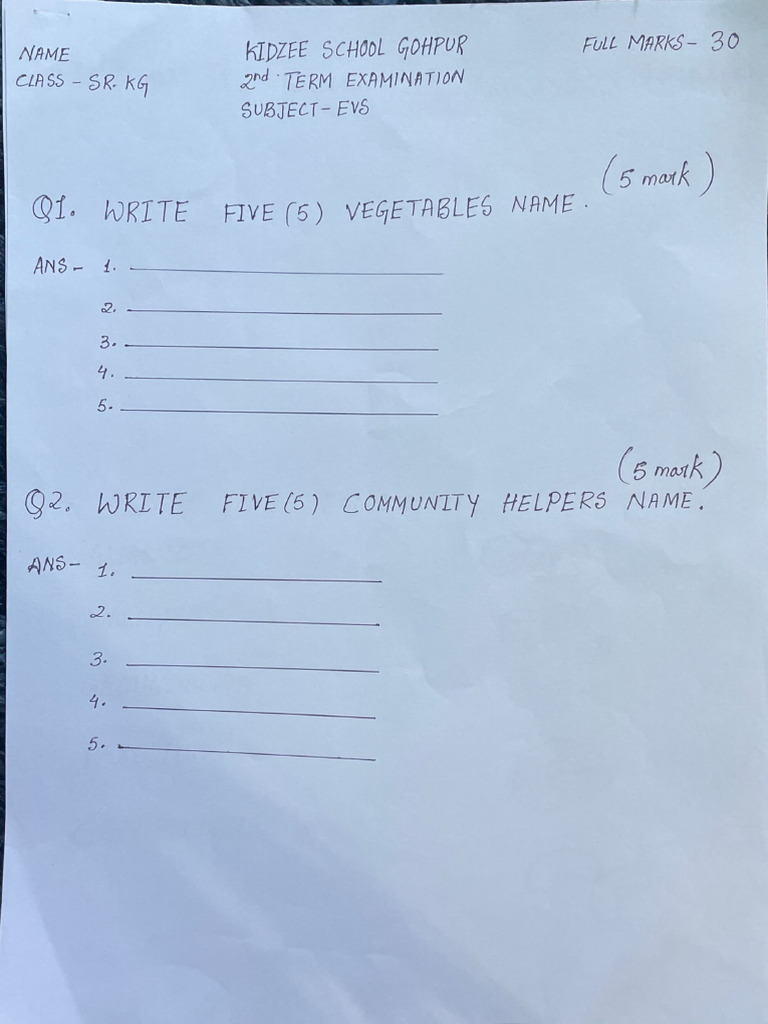 NAME
KIDZEE SCHOOL GOHPUR
FULL MARKS - 30
CLASS - SR. KG
2nd TERM EXAMINATION
SUBJECT - EVS
(5 mark)
Q1. WRITE FIVE (5) VEGETABLES NAME.
ANS - 1.
2.
3.
4.
5.
(5 mark)
Q2. WRITE FIVE (5) COMMUNITY HELPERS NAME.
ANS - 1.
2.
3.
4.
5.